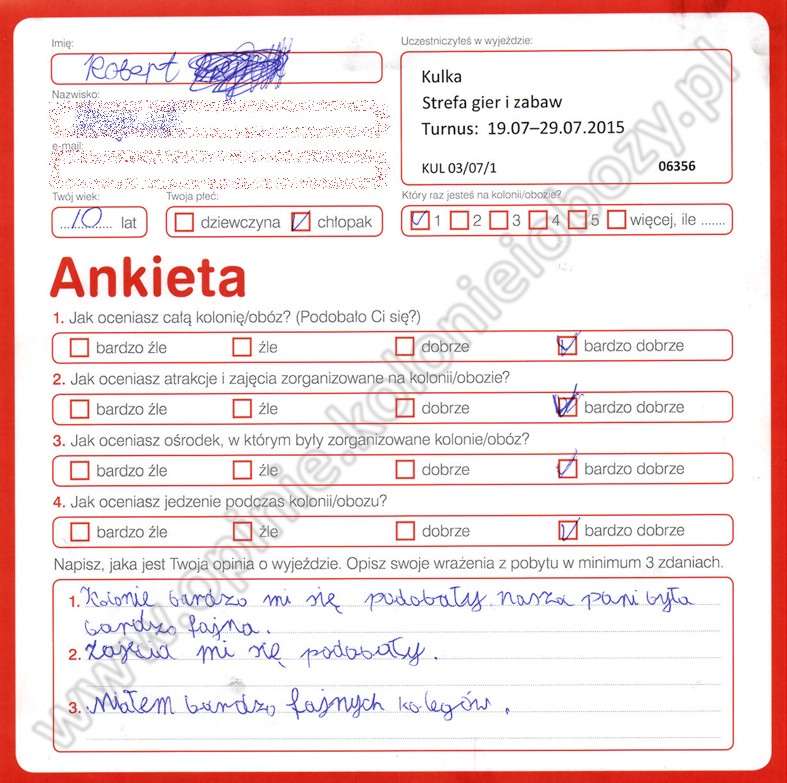 Imię:
Robert
Uczestniczyłeś w wyjeździe:
Kulka
Strefa gier i zabaw
Turnus: 19.07–29.07.2015
KUL 03/07/1 06356
Nazwisko:
e-mail:
Twój wiek: Twoja płeć: Który raz jesteś na kolonii/obozie?
10 lat dziewczyna chłopak 1 2 3 4 5 więcej, ile .......
Ankieta
1. Jak oceniasz całą kolonię/obóz? (Podobało Ci się?)
bardzo źle źle dobrze bardzo dobrze
2. Jak oceniasz atrakcje i zajęcia zorganizowane na kolonii/obozie?
bardzo źle źle dobrze bardzo dobrze
3. Jak oceniasz ośrodek, w którym były zorganizowane kolonie/obóz?
bardzo źle źle dobrze bardzo dobrze
4. Jak oceniasz jedzenie podczas kolonii/obozu?
bardzo źle źle dobrze bardzo dobrze
Napisz, jaka jest Twoja opinia o wyjeździe. Opisz swoje wrażenia z pobytu w minimum 3 zdaniach.
1. Kolonie bardzo mi się podobały. nasza pani była
bardzo fajna.
2. Zajęcia mi się podobały.
3. Miałem bardzo fajnych kolegów.
www.opinie.kolonieiobozy.pl